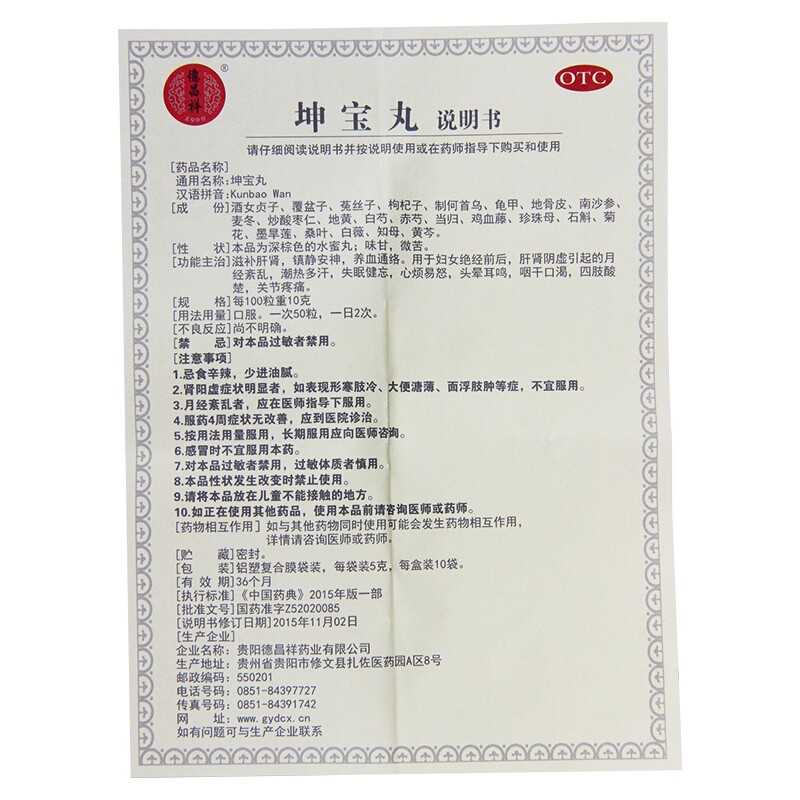 德昌祥
®
1900
OTC
坤宝丸 说明书
请仔细阅读说明书并按说明使用或在药师指导下购买和使用
[药品名称]
通用名称:坤宝丸
汉语拼音:Kunbao Wan
[成 份]酒女贞子、覆盆子、菟丝子、枸杞子、制何首乌、龟甲、地骨皮、南沙参、
麦冬、炒酸枣仁、地黄、白芍、赤芍、当归、鸡血藤、珍珠母、石斛、菊
花、墨旱莲、桑叶、白薇、知母、黄芩。
[性 状]本品为深棕色的水蜜丸；味甘，微苦。
[功能主治]滋补肝肾，镇静安神，养血通络。用于妇女绝经前后，肝肾阴虚引起的月
经紊乱，潮热多汗，失眠健忘，心烦易怒，头晕耳鸣，咽干口渴，四肢酸
楚，关节疼痛。
[规 格]每100粒重10克
[用法用量]口服。一次50粒，一日2次。
[不良反应]尚不明确。
[禁 忌]对本品过敏者禁用。
[注意事项]
1.忌食辛辣，少进油腻。
2.肾阳虚症状明显者，如表现形寒肢冷、大便溏薄、面浮肢肿等症，不宜服用。
3.月经紊乱者，应在医师指导下服用。
4.服药4周症状无改善，应到医院诊治。
5.按用法用量服用，长期服用应向医师咨询。
6.感冒时不宜服用本药。
7.对本品过敏者禁用，过敏体质者慎用。
8.本品性状发生改变时禁止使用。
9.请将本品放在儿童不能接触的地方。
10.如正在使用其他药品，使用本品前请咨询医师或药师。
[药物相互作用] 如与其他药物同时使用可能会发生药物相互作用，
详情请咨询医师或药师。
[贮 藏]密封。
[包 装]铝塑复合膜袋装，每袋装5克，每盒装10袋。
[有 效 期]36个月
[执行标准]《中国药典》2015年版一部
[批准文号]国药准字Z52020085
[说明书修订日期]2015年11月02日
[生产企业]
企业名称：贵阳德昌祥药业有限公司
生产地址：贵州省贵阳市修文县扎佐医药园A区8号
邮政编码：550201
电话号码：0851-84397727
传真号码：0851-84391742
网 址：www.gydcx.cn
如有问题可与生产企业联系